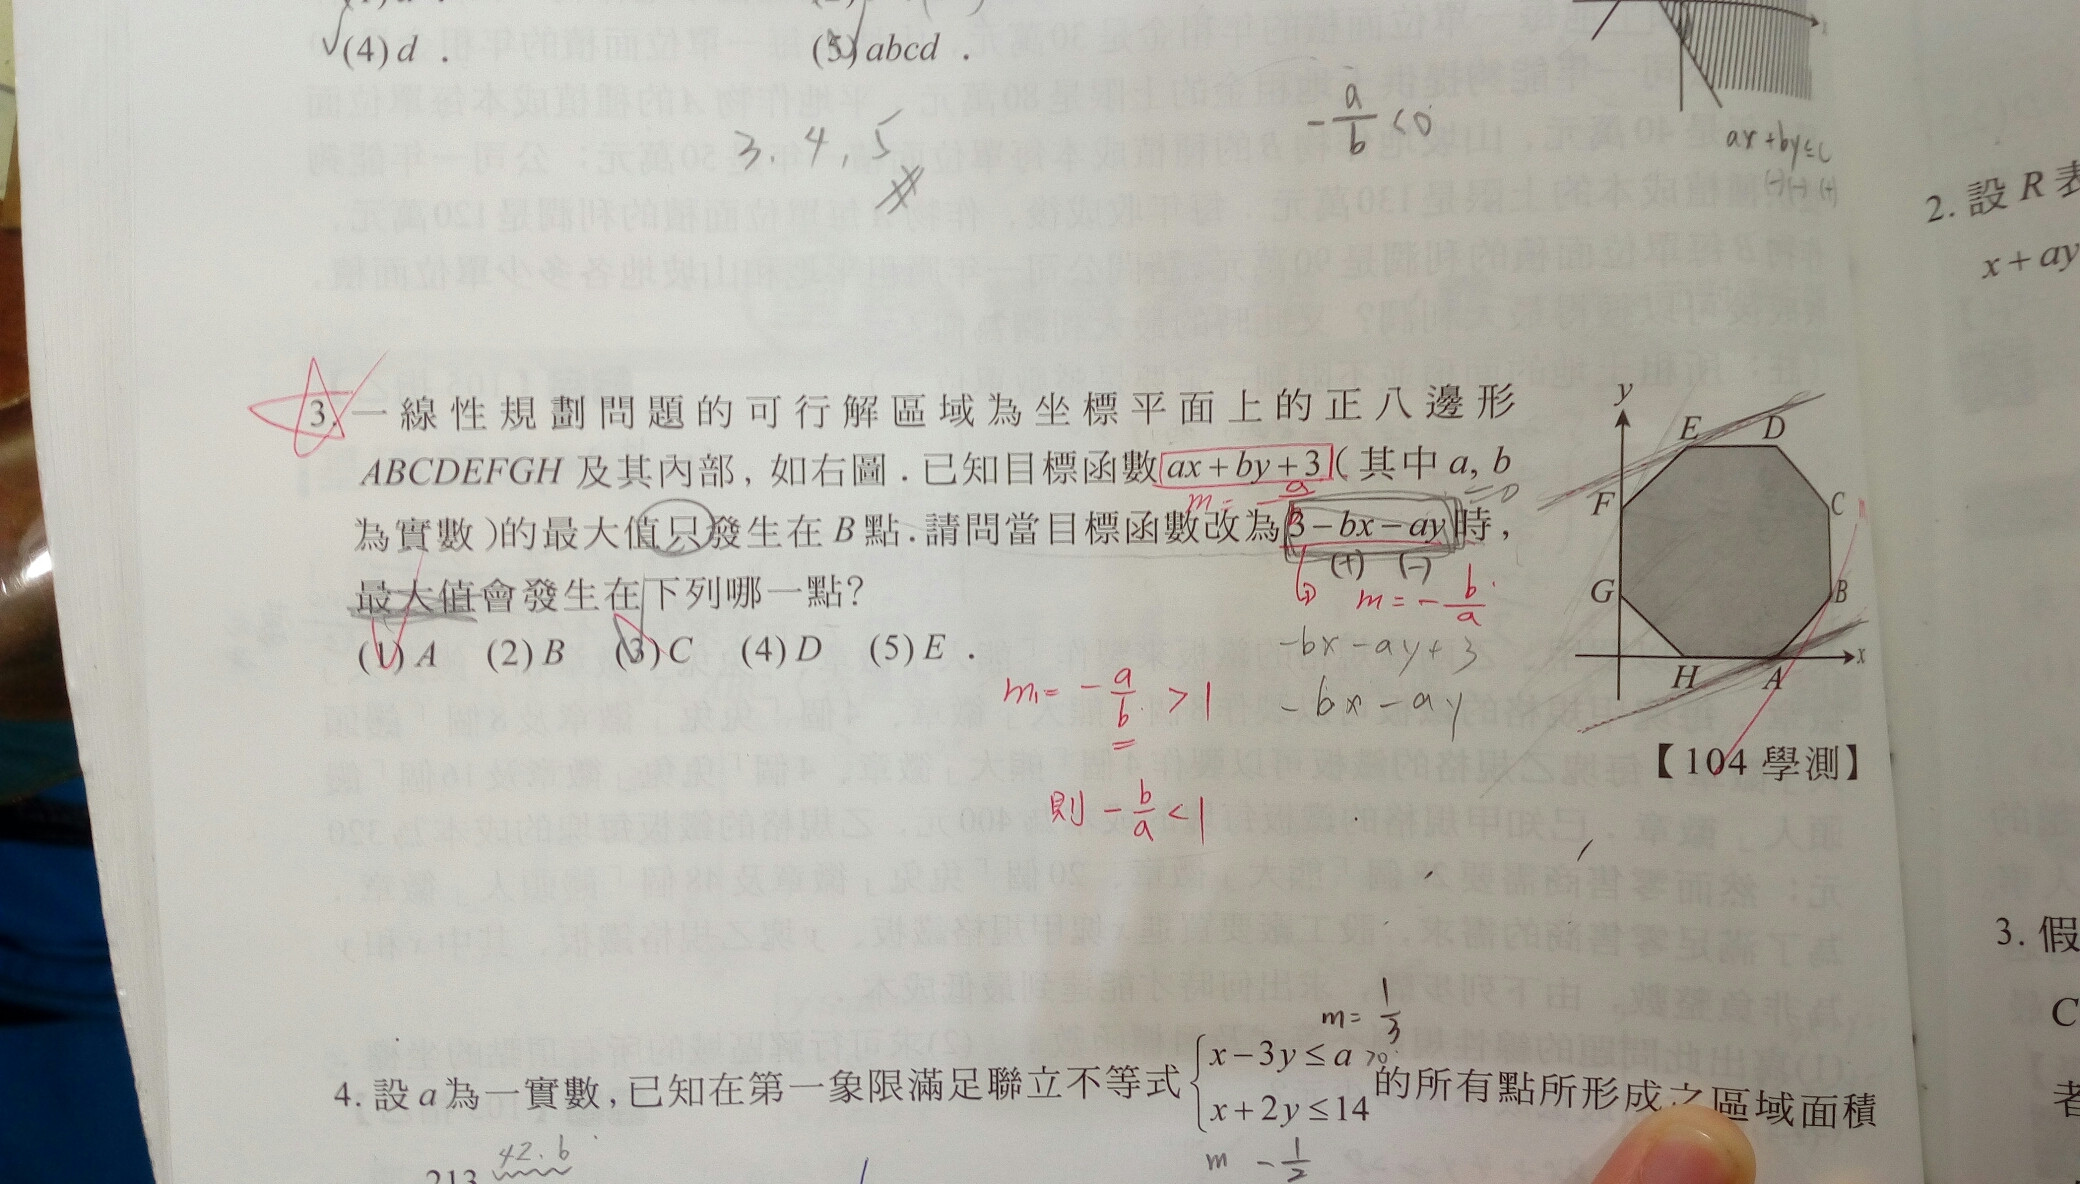 (4) d .
(5) abcd .
3. 4, 5
-a/b < 0
ax + by ≤ c
(-) (-) (+)
2. 設 R 表
x + ay
3. 一線性規劃問題的可行解區域為坐標平面上的正八邊形
ABCDEFGH 及其內部, 如右圖. 已知目標函數 ax+by+3 (其中 a, b
m = -a/b
為實數)的最大值只發生在 B 點. 請問當目標函數改為 3-bx-ay 時,
(+) (-)
最大值會發生在下列哪一點?
m = -b/a
(1) A (2) B (3) C (4) D (5) E .
-bx-ay+3
-bx-ay
m = -a/b > 1
則 -b/a < 1
y
E D
F C
G B
H A x
【104 學測】
3. 假
C
者
m = 1/3
4. 設 a 為一實數, 已知在第一象限滿足聯立不等式 { x-3y≤a >0
x+2y≤14 的所有點所形成之區域面積
m -1/2
213
42.6